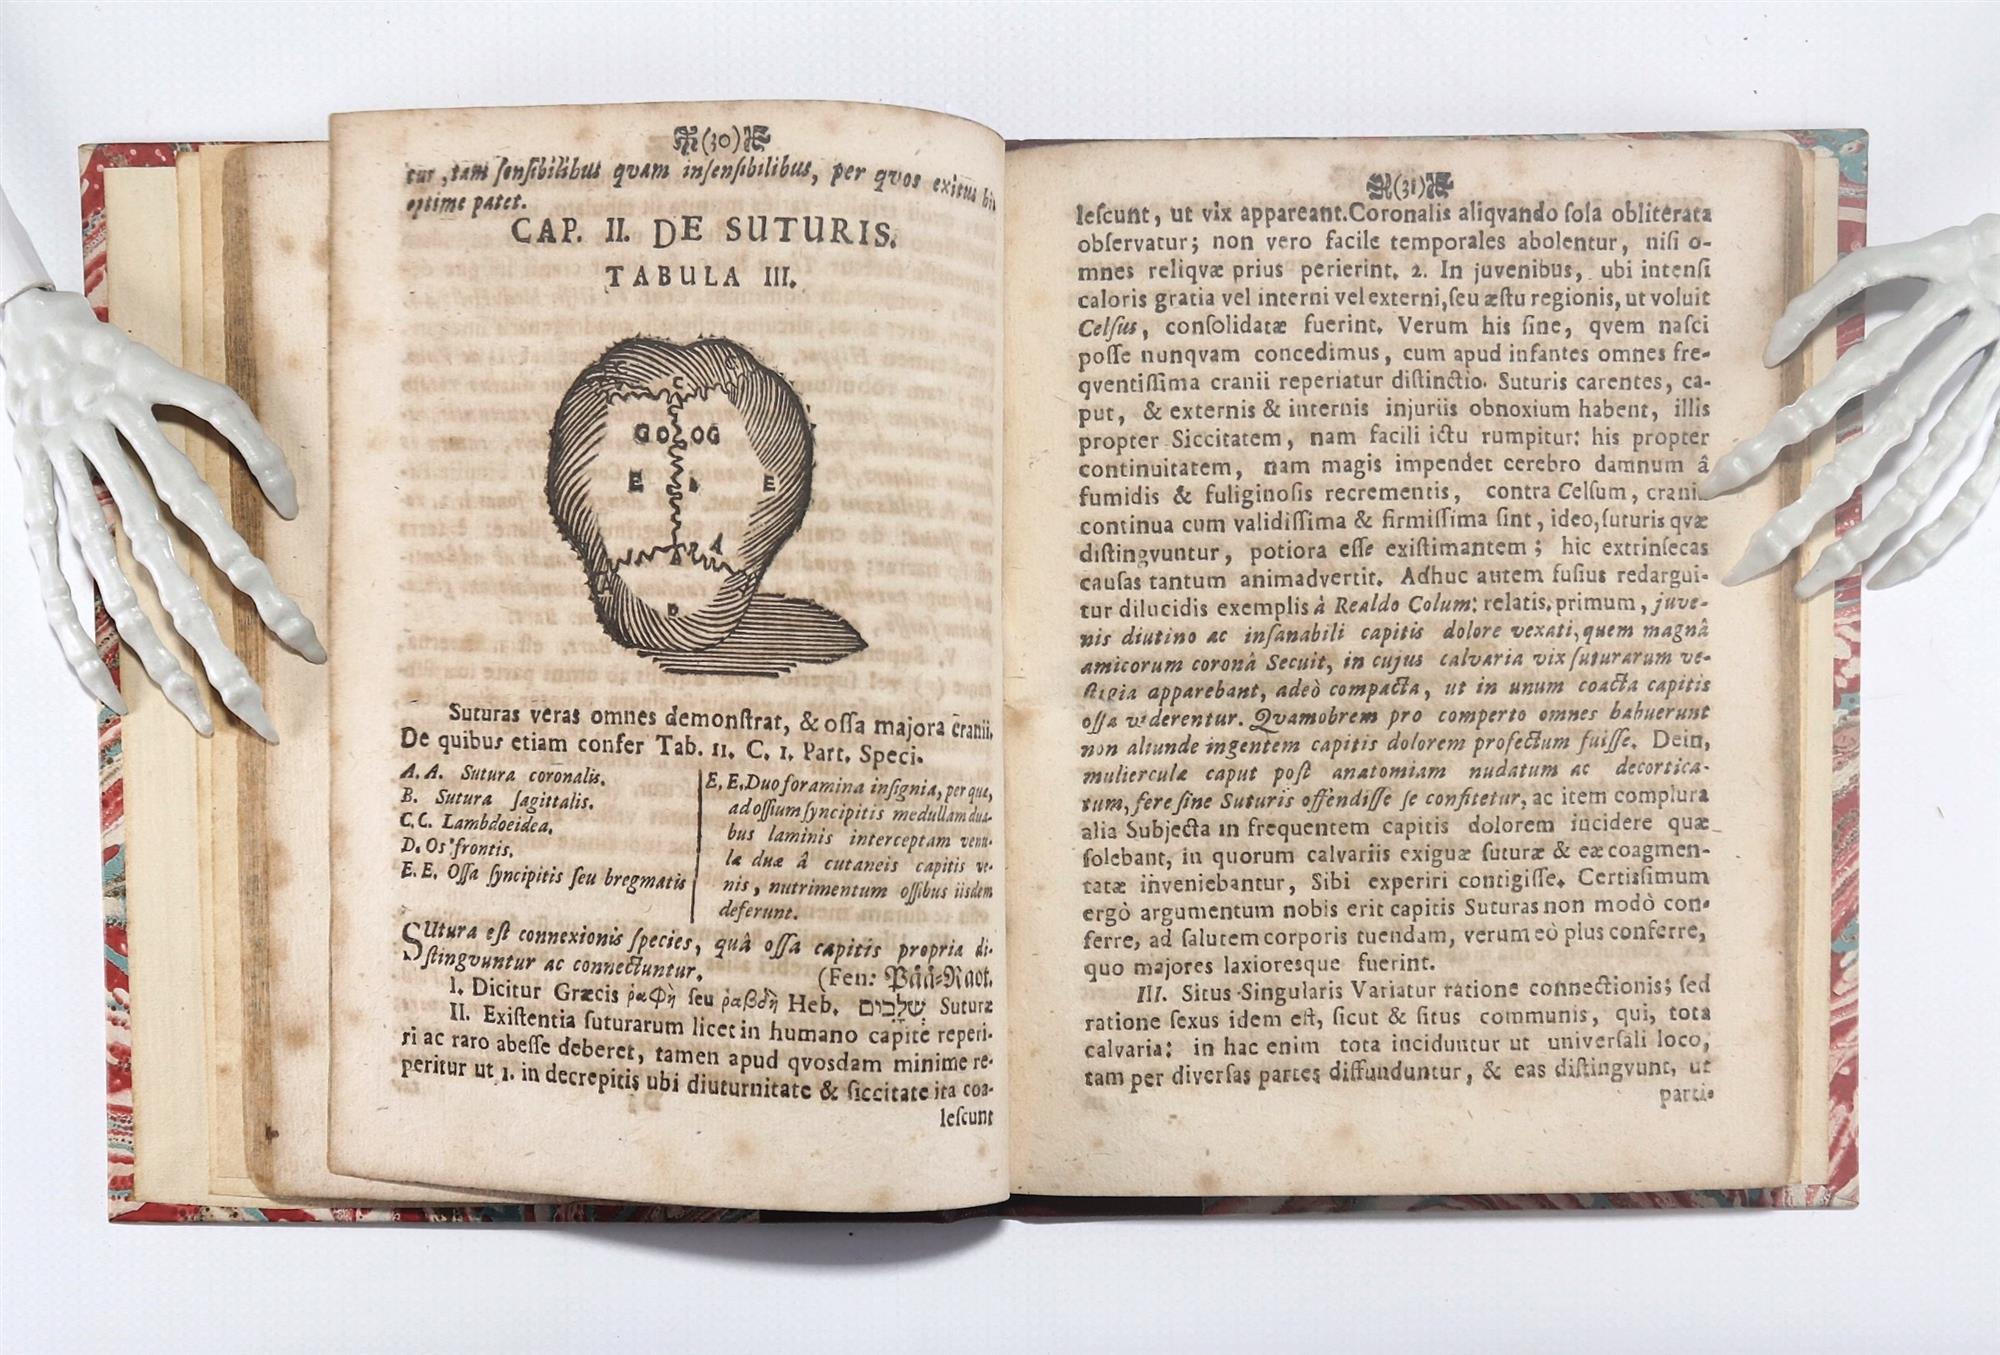 (30)
tur, tam ſenſibilibus quam inſenſibilibus, per qvos exitus
optime patet.
CAP. II. DE SUTURIS.
TABULA III.
C
GO OG
E I E
A
D
Suturas veras omnes demonſtrat, & oſſa majora cranii.
De quibus etiam confer Tab. II. C. I. Part. Speci.
A. A. Sutura coronalis.
B. Sutura ſagittalis.
C. C. Lambdoeidea.
D. Os frontis.
E. E. Oſſa ſyncipitis ſeu bregmatis
E, E. Duo foramina inſignia, per que,
ad oſſium ſyncipitis medullam dua-
bus laminis interceptam venu-
læ duæ â cutaneis capitis ve-
nis, nutrimentum oſſibus iisdem
deferunt.
SUtura eſt connexionis ſpecies, quâ oſſa capitis propria di-
ſtingvuntur ac connectuntur.
(Fen: Pää-Raot.
I. Dicitur Græcis ῥαφὴ ſeu ῥαβδὴ Heb. שְׁלַבִּים Suturæ
II. Exiſtentia ſuturarum licet in humano capite reperi-
ri ac raro abeſſe deberet, tamen apud qvosdam minime re-
peritur ut 1. in decrepitis ubi diuturnitate & ſiccitate ita coa-
leſcunt
(31)
leſcunt, ut vix appareant. Coronalis aliqvando ſola obliterata
obſervatur; non vero facile temporales abolentur, niſi o-
mnes reliqvæ prius perierint. 2. In juvenibus, ubi intenſi
caloris gratia vel interni vel externi, ſeu æſtu regionis, ut voluit
Celſus, conſolidatæ fuerint. Verum his ſine, qvem naſci
poſſe nunqvam concedimus, cum apud infantes omnes fre-
qventiſſima cranii reperiatur diſtinctio. Suturis carentes, ca-
put, & externis & internis injuriis obnoxium habent, illis
propter Siccitatem, nam facili ictu rumpitur: his propter
continuitatem, nam magis impendet cerebro damnum â
fumidis & fuliginoſis recrementis, contra Celſum, crania
continua cum validiſſima & firmiſſima ſint, ideo, ſuturis qvæ
diſtingvuntur, potiora eſſe exiſtimantem; hic extrinſecas
cauſas tantum animadvertit. Adhuc autem fuſius redargui-
tur dilucidis exemplis à Realdo Colum: relatis. primum, juve-
nis diutino ac inſanabili capitis dolore vexati, quem magnâ
amicorum coronâ Secuit, in cujus calvaria vix ſuturarum ve-
ſtigia apparebant, adeò compacta, ut in unum coacta capitis
oſſa viderentur. Qvamobrem pro comperto omnes bahuerunt
non aliunde ingentem capitis dolorem profectum fuiſſe. Dein,
mulierculæ caput poſt anatomiam nudatum ac decortica-
tum, fere ſine Suturis offendiſſe ſe confitetur, ac item complura
alia Subjecta in frequentem capitis dolorem incidere quæ
ſolebant, in quorum calvariis exiguæ ſuturæ & eæ coagmen-
tatæ inveniebantur, Sibi experiri contigiſſe. Certiſſimum
ergò argumentum nobis erit capitis Suturas non modò con-
ferre, ad ſalutem corporis tuendam, verum eò plus conferre,
quo majores laxioresque fuerint.
III. Situs Singularis Variatur ratione connectionis; ſed
ratione ſexus idem eſt, ſicut & ſitus communis, qui, tota
calvaria: in hac enim tota inciduntur ut univerſali loco,
tam per diverſas partes diffunduntur, & eas diſtingvunt, ut
parti-